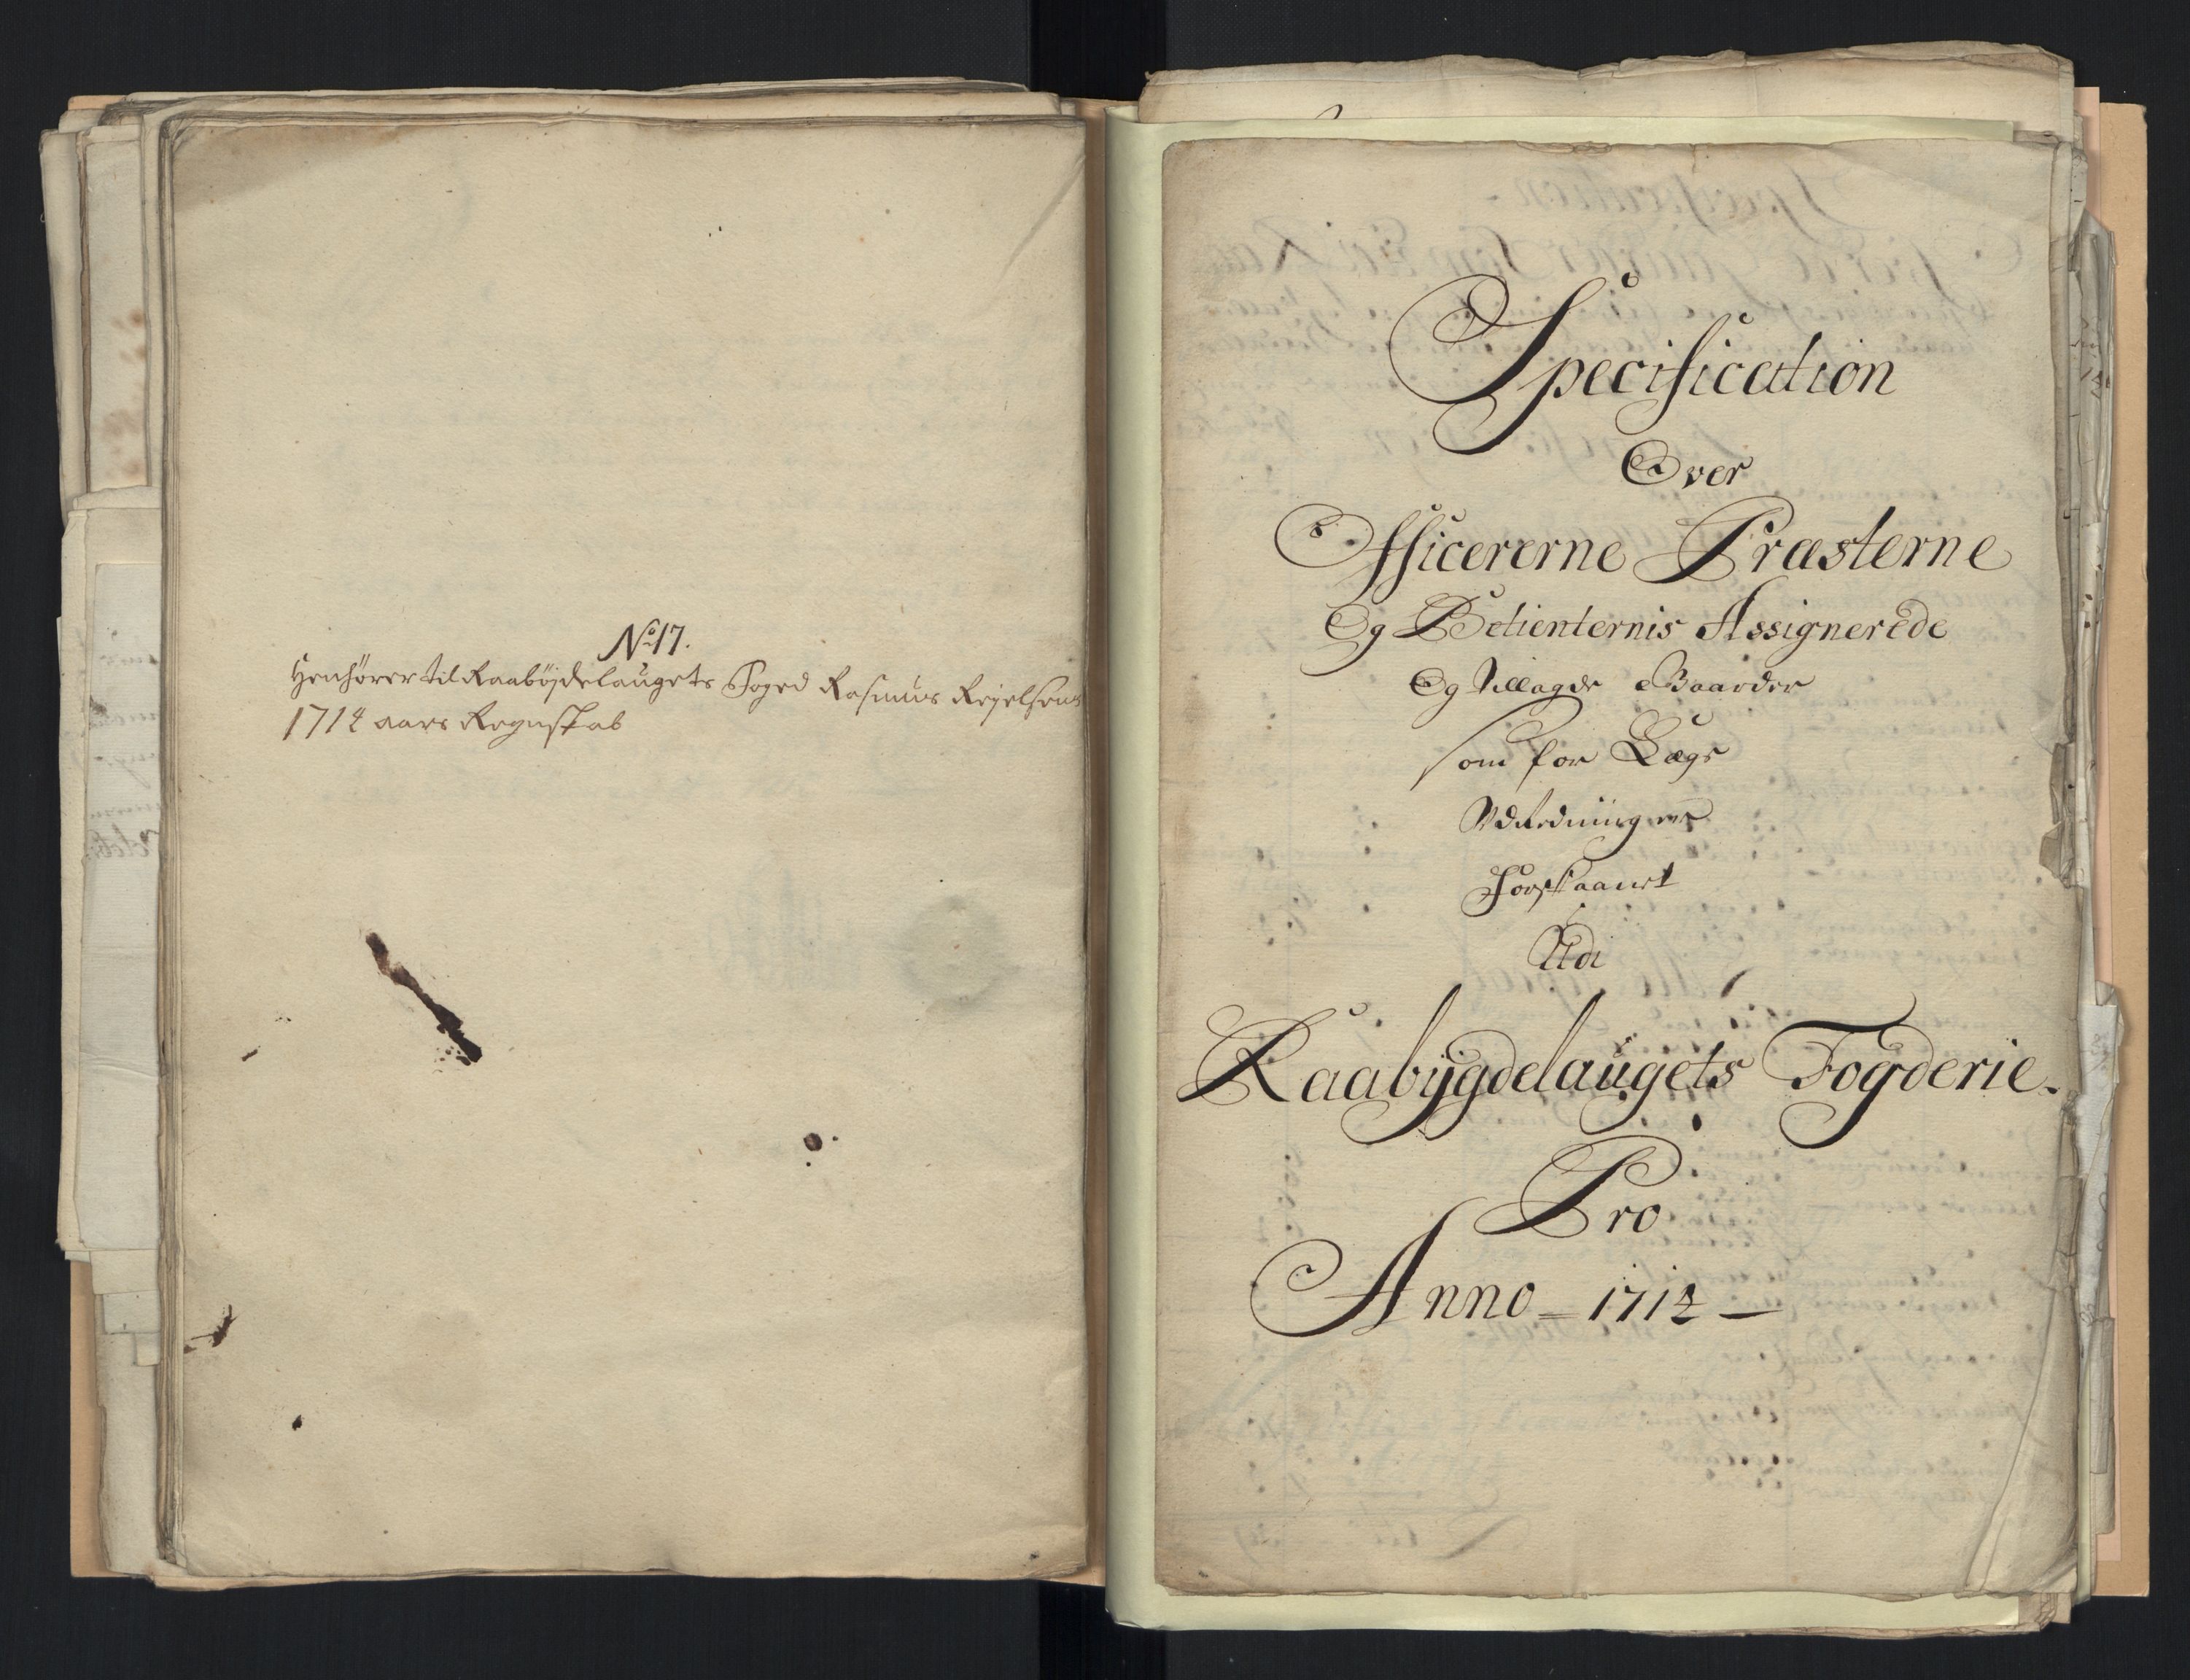 No 17.
Henhører til Raabøjdelaugets Foged Rasmus
1712 aars Regnskab
Specification
Over
Officererne Præsterne
Og Betienternis Assignerede
Og Tillagde Gaarder
som for Lægs
Udredninger
Forskaanet
Udi
Raabÿgdelaugets Fogderie.
Pro
Anno – 1712 –